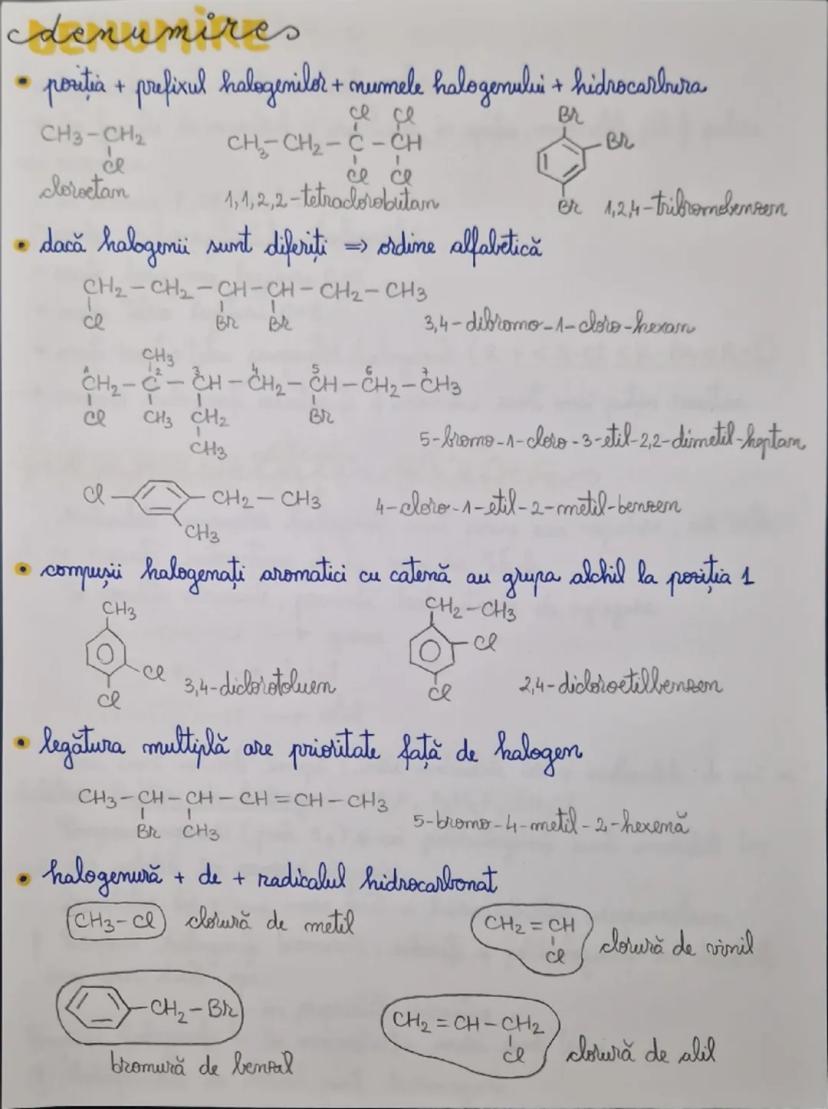 DENUMIRE
denumires
• poziția + prefixul halogenilor + numele halogenului + hidrocarbura
CH3-CH2
Cl
cloroetan
Cl Cl
CH3-CH2-C-CH
Cl Cl
1,1,2,2-tetraclorobutan
Br
Br
Br
1,2,4-tribromobenzen
• dacă halogenii sunt diferiți => ordine alfabetică
CH2-CH2-CH-CH-CH2-CH3
Cl Br Br
3,4-dibromo-1-cloro-hexan
CH3
1 2 3 4 5 6 7
CH2-C-CH-CH2-CH-CH2-CH3
Cl CH3 CH2 Br
CH3
5-bromo-1-cloro-3-etil-2,2-dimetil-heptan
Cl CH2-CH3
CH3
4-cloro-1-etil-2-metil-benzen
• compușii halogenați aromatici cu catenă au grupa alchil la poziția 1
CH3
Cl
Cl
3,4-diclorotoluen
CH2-CH3
Cl
Cl
2,4-dicloroetilbenzen
• legătura multiplă are prioritate față de halogen
CH3-CH-CH-CH=CH-CH3
Br CH3
5-bromo-4-metil-2-hexenă
• halogenură + de + radicalul hidrocarbonat
CH3-Cl clorură de metil
CH2=CH
Cl
clorură de vinil
CH2-Br
bromură de benzil
CH2=CH-CH2
Cl
clorură de alil